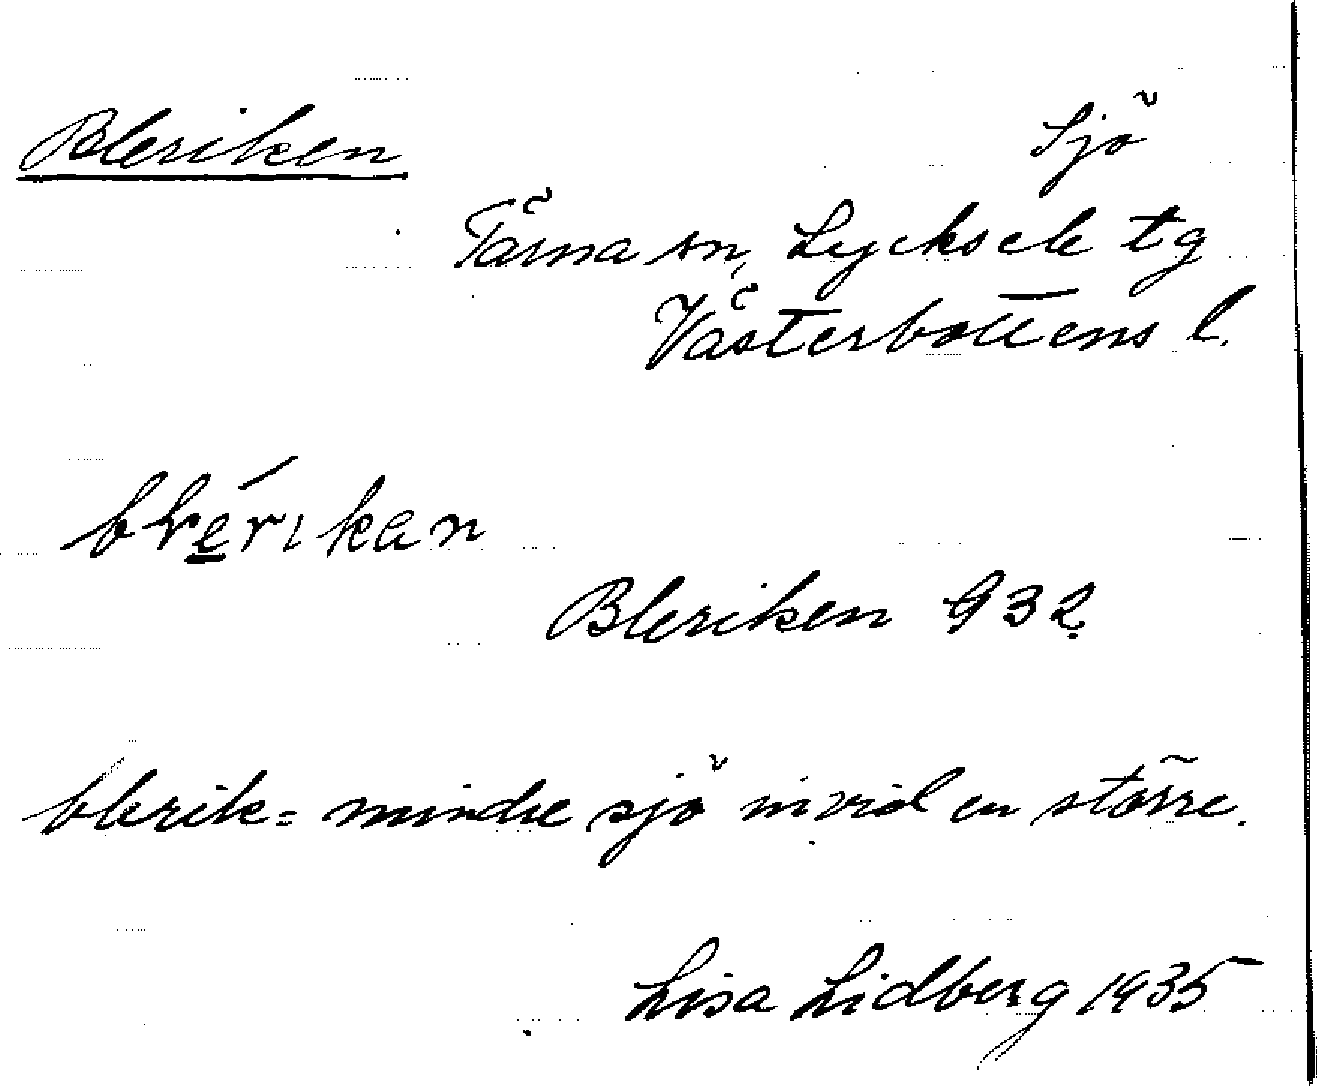 Bleriken
Sjö
Tärna sn, Lycksele tg
Västerbottens l.
blérikan
Bleriken 932
blerik = mindre sjö invid en större.
Lisa Lidberg 1935